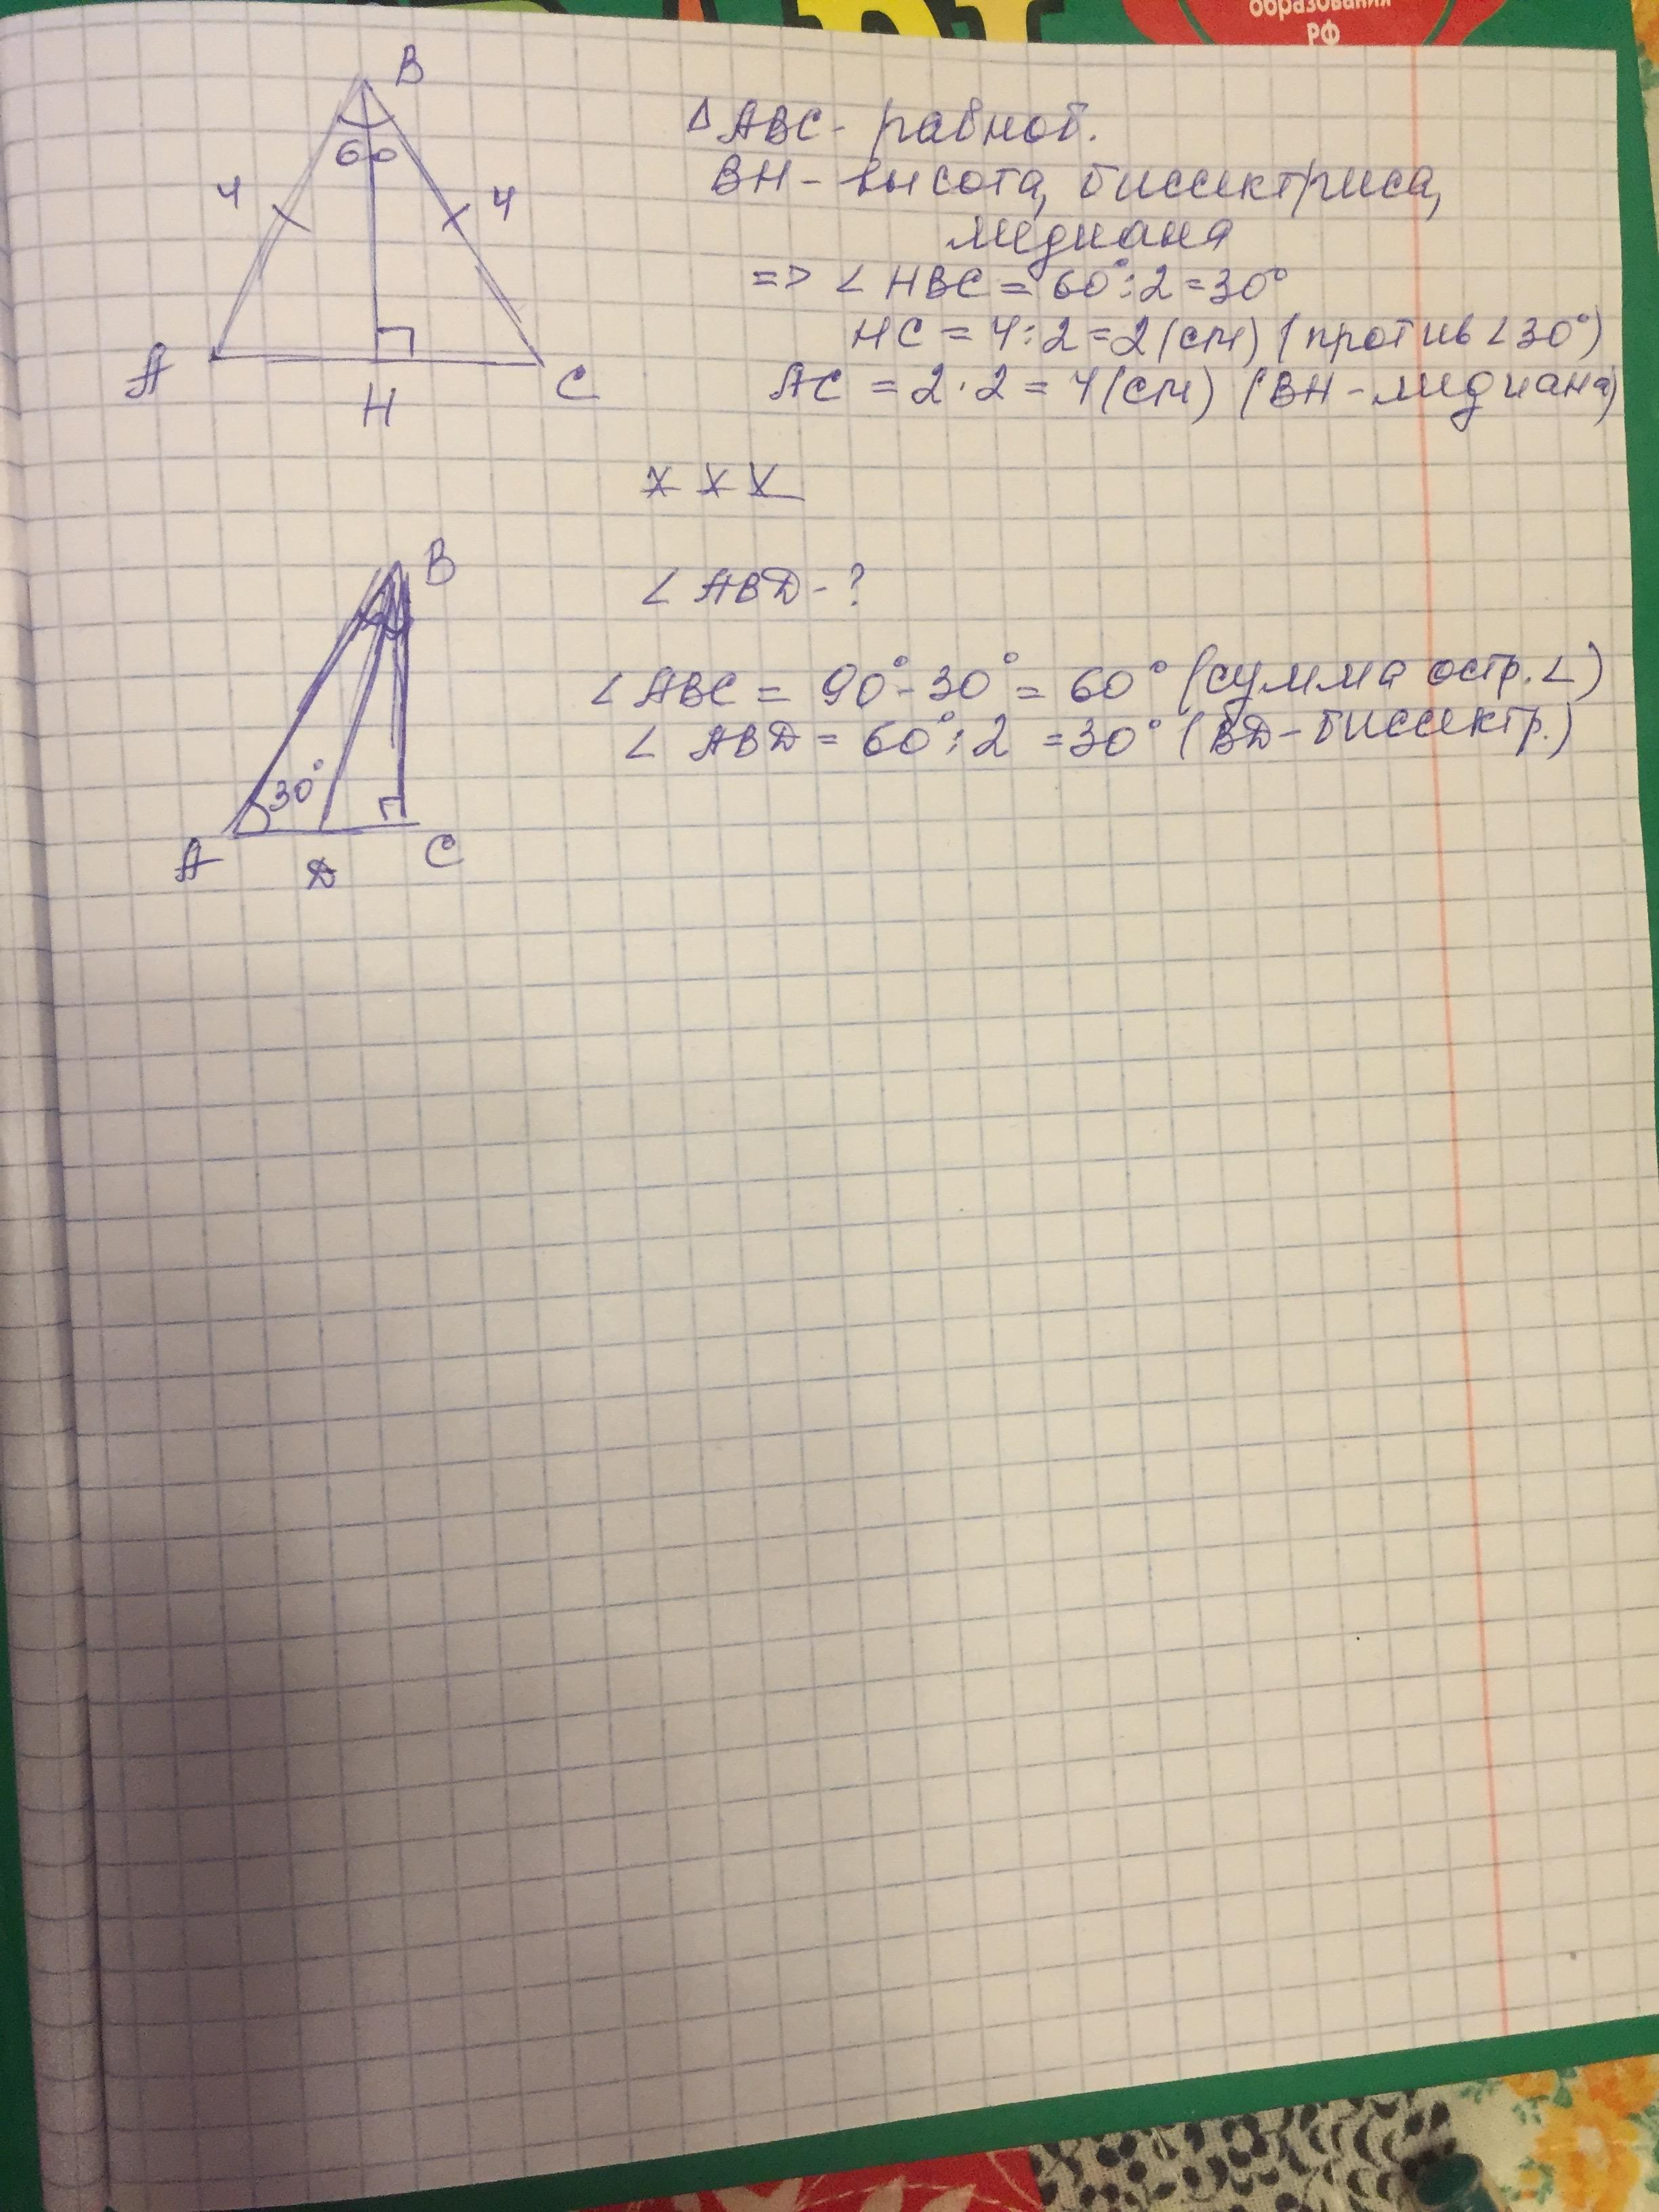 образования
РФ
B
60
4 4
A H C
△ ABC - равноб.
BH - высота, биссектриса,
медиана
=> ∠ HBC = 60° : 2 = 30°
HC = 4 : 2 = 2 (см) (против ∠30°)
AC = 2 · 2 = 4 (см) (BH - медиана)
x x x
B
30°
A D C
∠ ABD - ?
∠ ABC = 90° - 30° = 60° (сумма остр. ∠)
∠ ABD = 60° : 2 = 30° (BD - биссектр.)